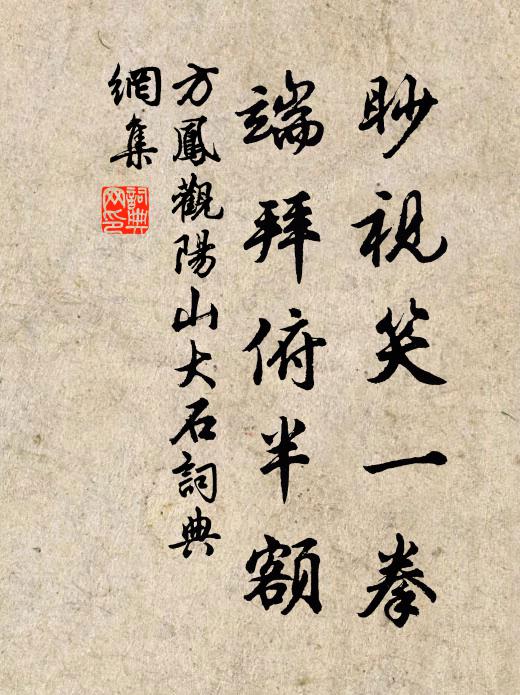 眇視笑一拳
端拜俯半額
方鳳觀陽山大石詞典
網集
詞典
网印